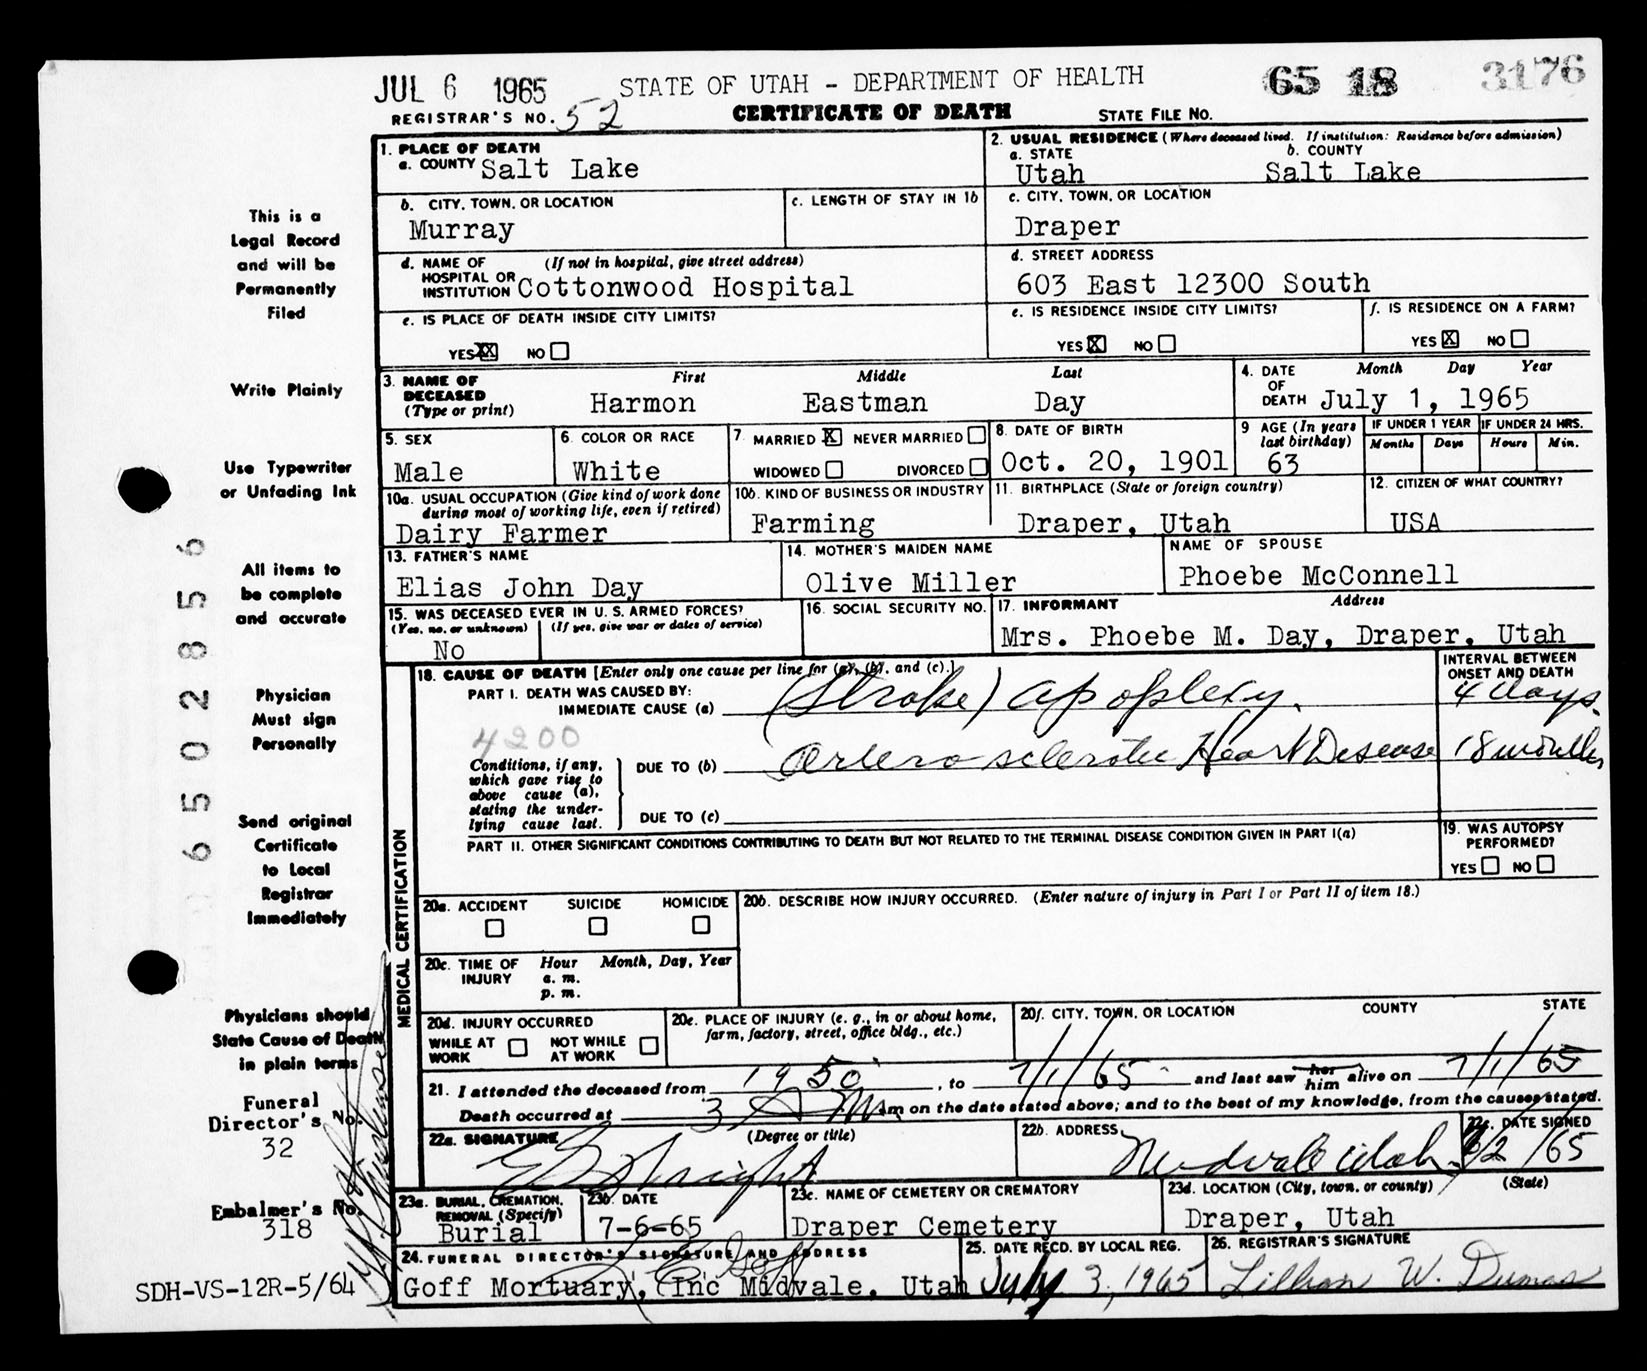 JUL 6 1965 STATE OF UTAH - DEPARTMENT OF HEALTH 65 18 3176
REGISTRAR'S NO. 52 CERTIFICATE OF DEATH STATE FILE NO.
1. PLACE OF DEATH
a. COUNTY Salt Lake
2. USUAL RESIDENCE (Where deceased lived. If institution: Residence before admission)
a. STATE Utah b. COUNTY Salt Lake
b. CITY, TOWN, OR LOCATION Murray
c. LENGTH OF STAY IN 1b
c. CITY, TOWN, OR LOCATION Draper
d. NAME OF HOSPITAL OR INSTITUTION (If not in hospital, give street address) Cottonwood Hospital
d. STREET ADDRESS 603 East 12300 South
e. IS PLACE OF DEATH INSIDE CITY LIMITS?
YES XX NO
e. IS RESIDENCE INSIDE CITY LIMITS?
YES X NO
f. IS RESIDENCE ON A FARM?
YES X NO
3. NAME OF DECEASED (Type or print)
First Middle Last
Harmon Eastman Day
4. DATE OF DEATH Month Day Year
July 1, 1965
5. SEX Male
6. COLOR OR RACE White
7. MARRIED X NEVER MARRIED
WIDOWED DIVORCED
8. DATE OF BIRTH Oct. 20, 1901
9 AGE (In years last birthday) 63
IF UNDER 1 YEAR Months Days
IF UNDER 24 HRS. Hours Min.
10a. USUAL OCCUPATION (Give kind of work done during most of working life, even if retired)
Dairy Farmer
10b. KIND OF BUSINESS OR INDUSTRY
Farming
11. BIRTHPLACE (State or foreign country)
Draper, Utah
12. CITIZEN OF WHAT COUNTRY?
USA
13. FATHER'S NAME
Elias John Day
14. MOTHER'S MAIDEN NAME
Olive Miller
NAME OF SPOUSE
Phoebe McConnell
15. WAS DECEASED EVER IN U.S. ARMED FORCES?
(Yes, no, or unknown) (If yes, give war or dates of service)
No
16. SOCIAL SECURITY NO.
17. INFORMANT Address
Mrs. Phoebe M. Day, Draper, Utah
MEDICAL CERTIFICATION
18. CAUSE OF DEATH [Enter only one cause per line for (a), (b), and (c).]
INTERVAL BETWEEN ONSET AND DEATH
PART I. DEATH WAS CAUSED BY:
IMMEDIATE CAUSE (a) (Stroke) apoplexy. 4 days.
4200
Conditions, if any, which gave rise to above cause (a), stating the underlying cause last.
DUE TO (b) Arterosclerotic Heart Disease 18 months
DUE TO (c)
PART II. OTHER SIGNIFICANT CONDITIONS CONTRIBUTING TO DEATH BUT NOT RELATED TO THE TERMINAL DISEASE CONDITION GIVEN IN PART I(a)
19. WAS AUTOPSY PERFORMED?
YES NO
20a. ACCIDENT SUICIDE HOMICIDE
20b. DESCRIBE HOW INJURY OCCURRED. (Enter nature of injury in Part I or Part II of item 18.)
20c. TIME OF INJURY Hour Month, Day, Year
a. m.
p. m.
20d. INJURY OCCURRED
WHILE AT WORK NOT WHILE AT WORK
20e. PLACE OF INJURY (e. g., in or about home, farm, factory, street, office bldg., etc.)
20f. CITY, TOWN, OR LOCATION COUNTY STATE
21. I attended the deceased from 1950, to 7/1/65 and last saw her him alive on 7/1/65
Death occurred at 3 A M. m on the date stated above; and to the best of my knowledge, from the causes stated.
22a. SIGNATURE (Degree or title)
22b. ADDRESS Midvale Utah
22c. DATE SIGNED /2/65
23a. BURIAL, CREMATION, REMOVAL (Specify)
Burial
23b. DATE
7-6-65
23c. NAME OF CEMETERY OR CREMATORY
Draper Cemetery
23d. LOCATION (City, town, or county) (State)
Draper, Utah
24. FUNERAL DIRECTOR'S SIGNATURE AND ADDRESS
Goff Mortuary, Inc Midvale, Utah
25. DATE RECD. BY LOCAL REG.
July 3, 1965
26. REGISTRAR'S SIGNATURE
Lillian W. Dumas
This is a
Legal Record
and will be
Permanently
Filed
Write Plainly
Use Typewriter
or Unfading Ink
All items to
be complete
and accurate
Physician
Must sign
Personally
Send original
Certificate
to Local
Registrar
Immediately
Physicians should
State Cause of Death
in plain terms
Funeral
Director's No.
32
Embalmer's No.
318
SDH-VS-12R-5/64
6502856